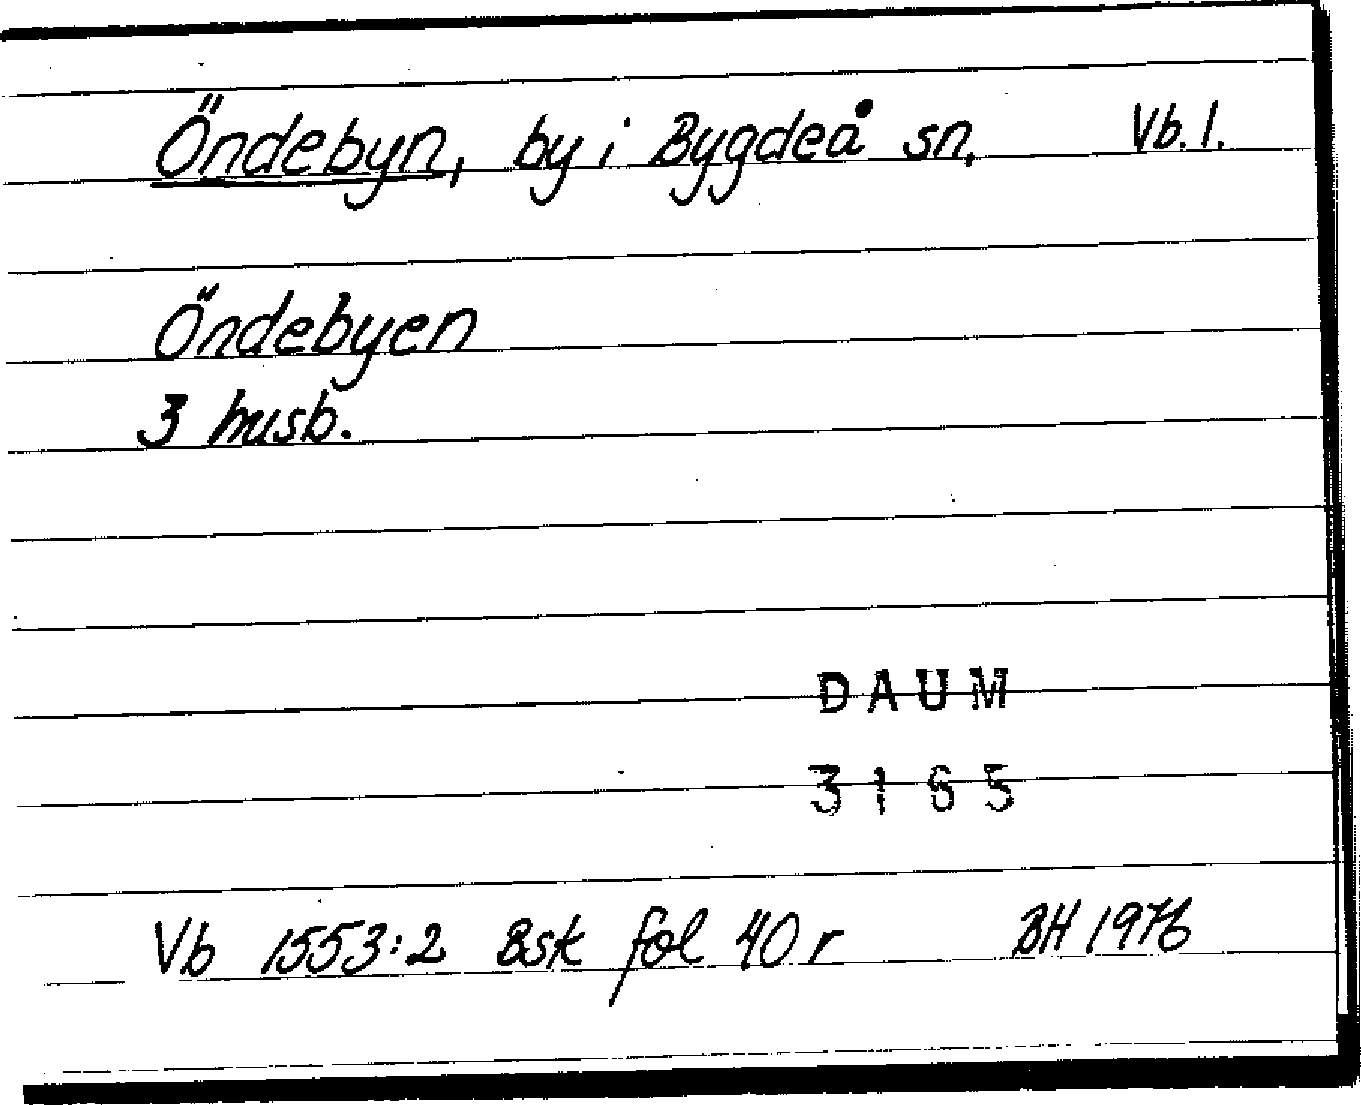 Öndebyn, by i Bygdeå sn. Vb. l.
Öndebyen
3 husb.
DAUM
3165
Vb 1553:2 Bsk fol 40 r BH 1976